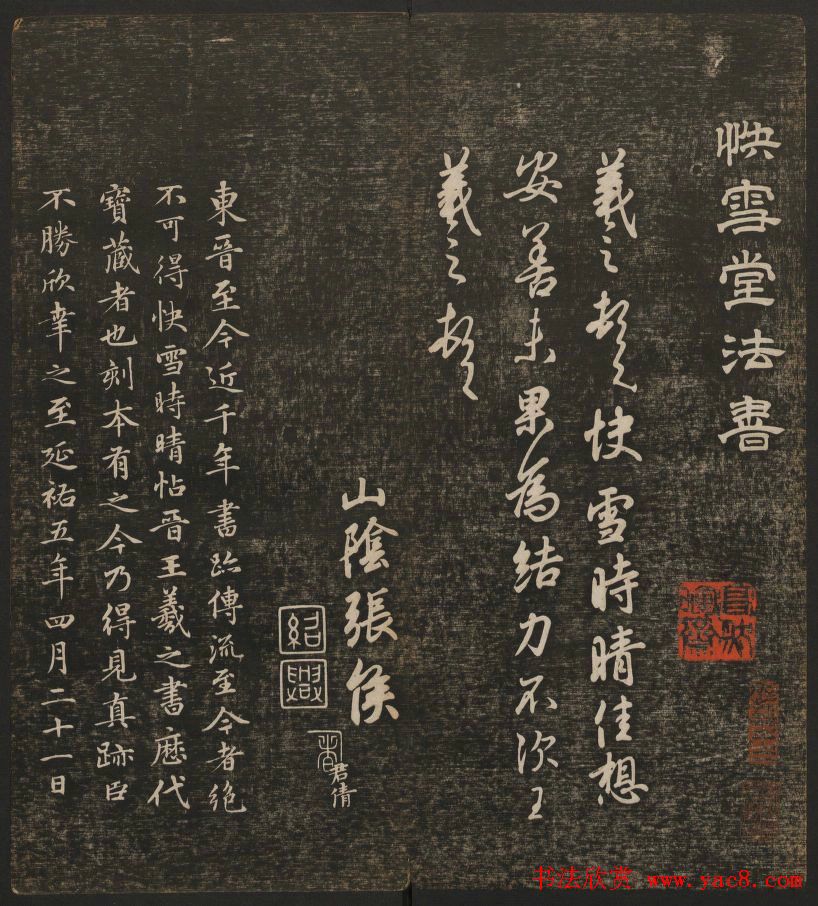 快雪堂法書
羲之頓首快雪時晴佳想
安善未果為結力不次王
羲之頓首
山陰張侯
紹興
君倩
東晉至今近千年書跡傳流至今者絕
不可得快雪時晴帖晉王羲之書歷代
寶藏者也刻本有之今乃得見真跡臣
不勝欣幸之至延祐五年四月二十一日
书法欣赏 www.yac8.com